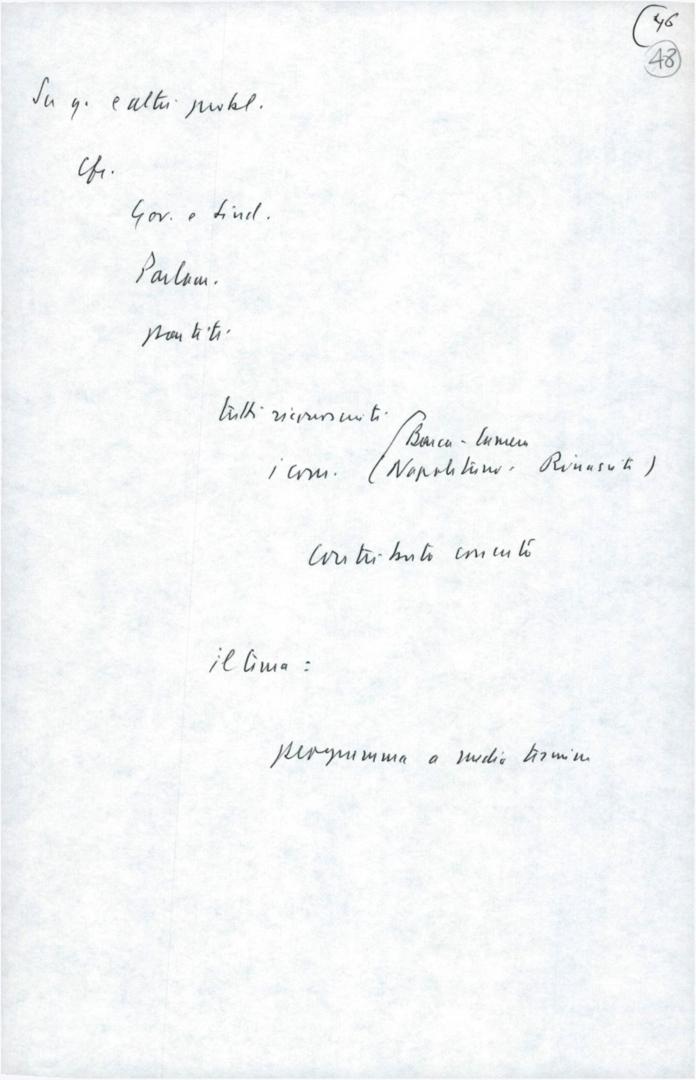 46
48
Su q. e altri probl.
Cfr.
Gov. e sind.
Parlam.
partiti
tutti riconosciuti
Barca - Camera
i com. (Napolitano - Rinascita)
Contributo concreto
il tema:
programma a medio termine